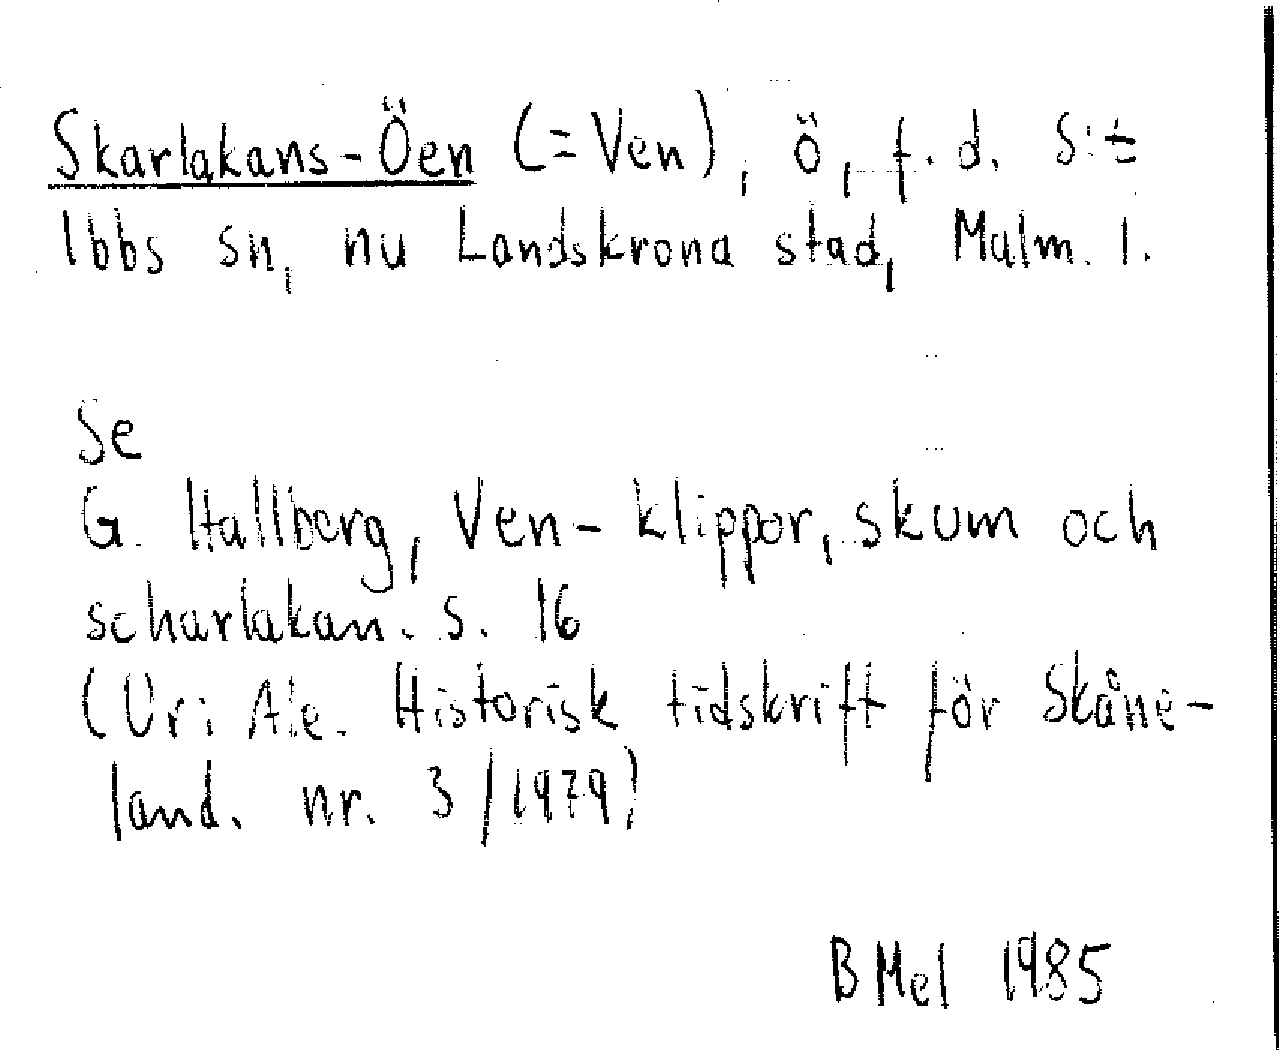 Skarlakans-Öen (=Ven), ö, f.d. S:t
Ibbs sn, nu Landskrona stad, Malm. l.
Se
G. Hallberg, Ven - klippor, skum och
scharlakan. s. 16
(Ur: Ale. Historisk tidskrift för Skåne-
land. nr. 3/1979)
B Mel 1985